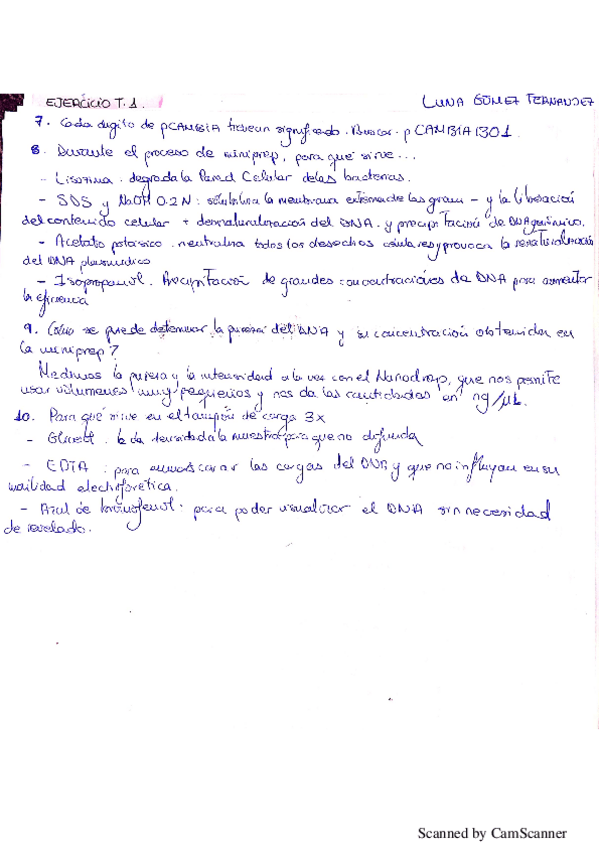 EJERCICIO T.1. LUNA GÓMEZ FERNANDEZ
7. Cada dígito de pCAMBIA tienen significado. Buscar pCAMBIA1301.
8. Durante el proceso de miniprep, para qué sirve...
- Lisozima. degrada la Pared Celular de las bacterias.
- SDS y NaOH 0.2N: solubiliza la membrana externa de las gram - y la liberación
del contenido celular + desnaturalización del DNA. y precipitación de DNA genómico.
- Acetato potásico. neutraliza todos los desechos celulares y provocan la renaturalización
del DNA plasmídico
- Isopropanol. Precipitación de grandes concentraciones de DNA para aumentar
la eficiencia
9. Cómo se puede determinar la pureza del DNA y su concentración obtenida en
la miniprep?
Medimos la pureza y la intensidad a la vez con el Nanodrop, que nos permite
usar volumenes muy pequeños y nos da las cantidades en ng/µL.
10. Para qué sirve en el tampón de carga 3x
- : le da densidad a la muestra para que no difunda
- EDTA: para enmascarar las cargas del DNA y que no influyan en su
movilidad electroforética.
- Azul de bromofenol: para poder visualizar el DNA sin necesidad
de revelado.
Scanned by CamScanner